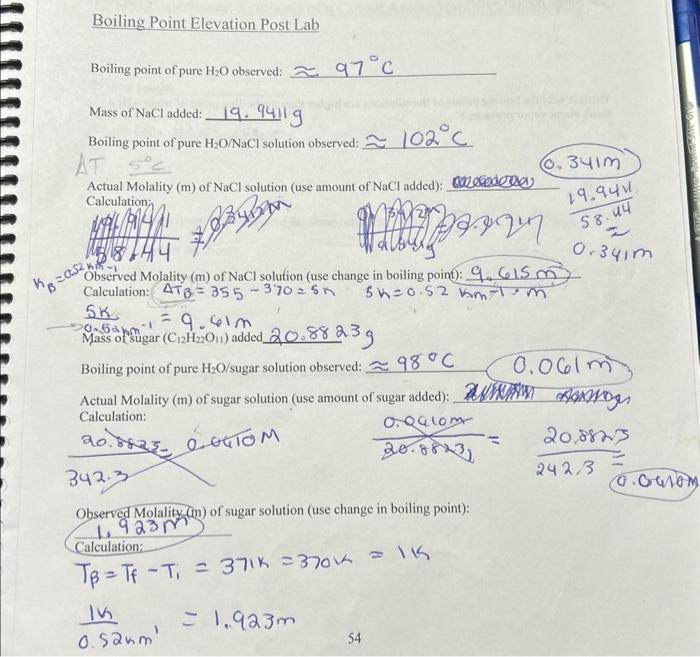 Boiling Point Elevation Post Lab
Boiling point of pure H₂O observed: ≈ 97°C
Mass of NaCl added: 19.9411g
Boiling point of pure H₂O/NaCl solution observed: ≈ 102°C
ΔT 5°C
0.341m
Actual Molality (m) of NaCl solution (use amount of NaCl added):
Calculation:
19.9411
58.44
≈
0.341m
58.44
KB = 0.52 Km-1
Observed Molality (m) of NaCl solution (use change in boiling point): 9.615m
Calculation: ΔTB = 355 - 370 = 5K 5K = 0.52 Km-1 · m
5K
0.52 Km-1 = 9.61m
Mass of sugar (C₁₂H₂₂O₁₁) added 20.8823g
Boiling point of pure H₂O/sugar solution observed: ≈ 98°C
0.061m
Actual Molality (m) of sugar solution (use amount of sugar added):
Calculation:
20.8823 = 0.0610M
342.3
0.0610m
20.8823 =
20.8823
242.3 =
0.0610M
Observed Molality (m) of sugar solution (use change in boiling point):
1.923m
Calculation:
TB = Tf - Ti = 371K = 370K = 1K
1K
0.52Km' = 1.923m
54